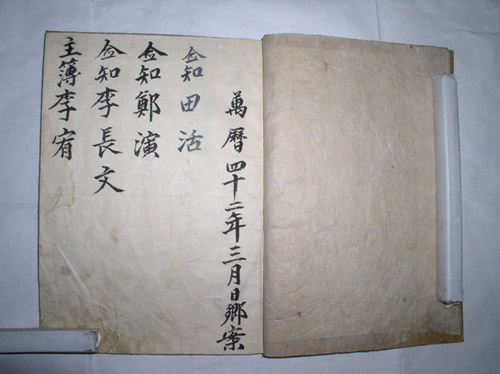 萬曆四十二年三月日鄕案
僉知田活
僉知鄭演
僉知李長文
主簿李宥